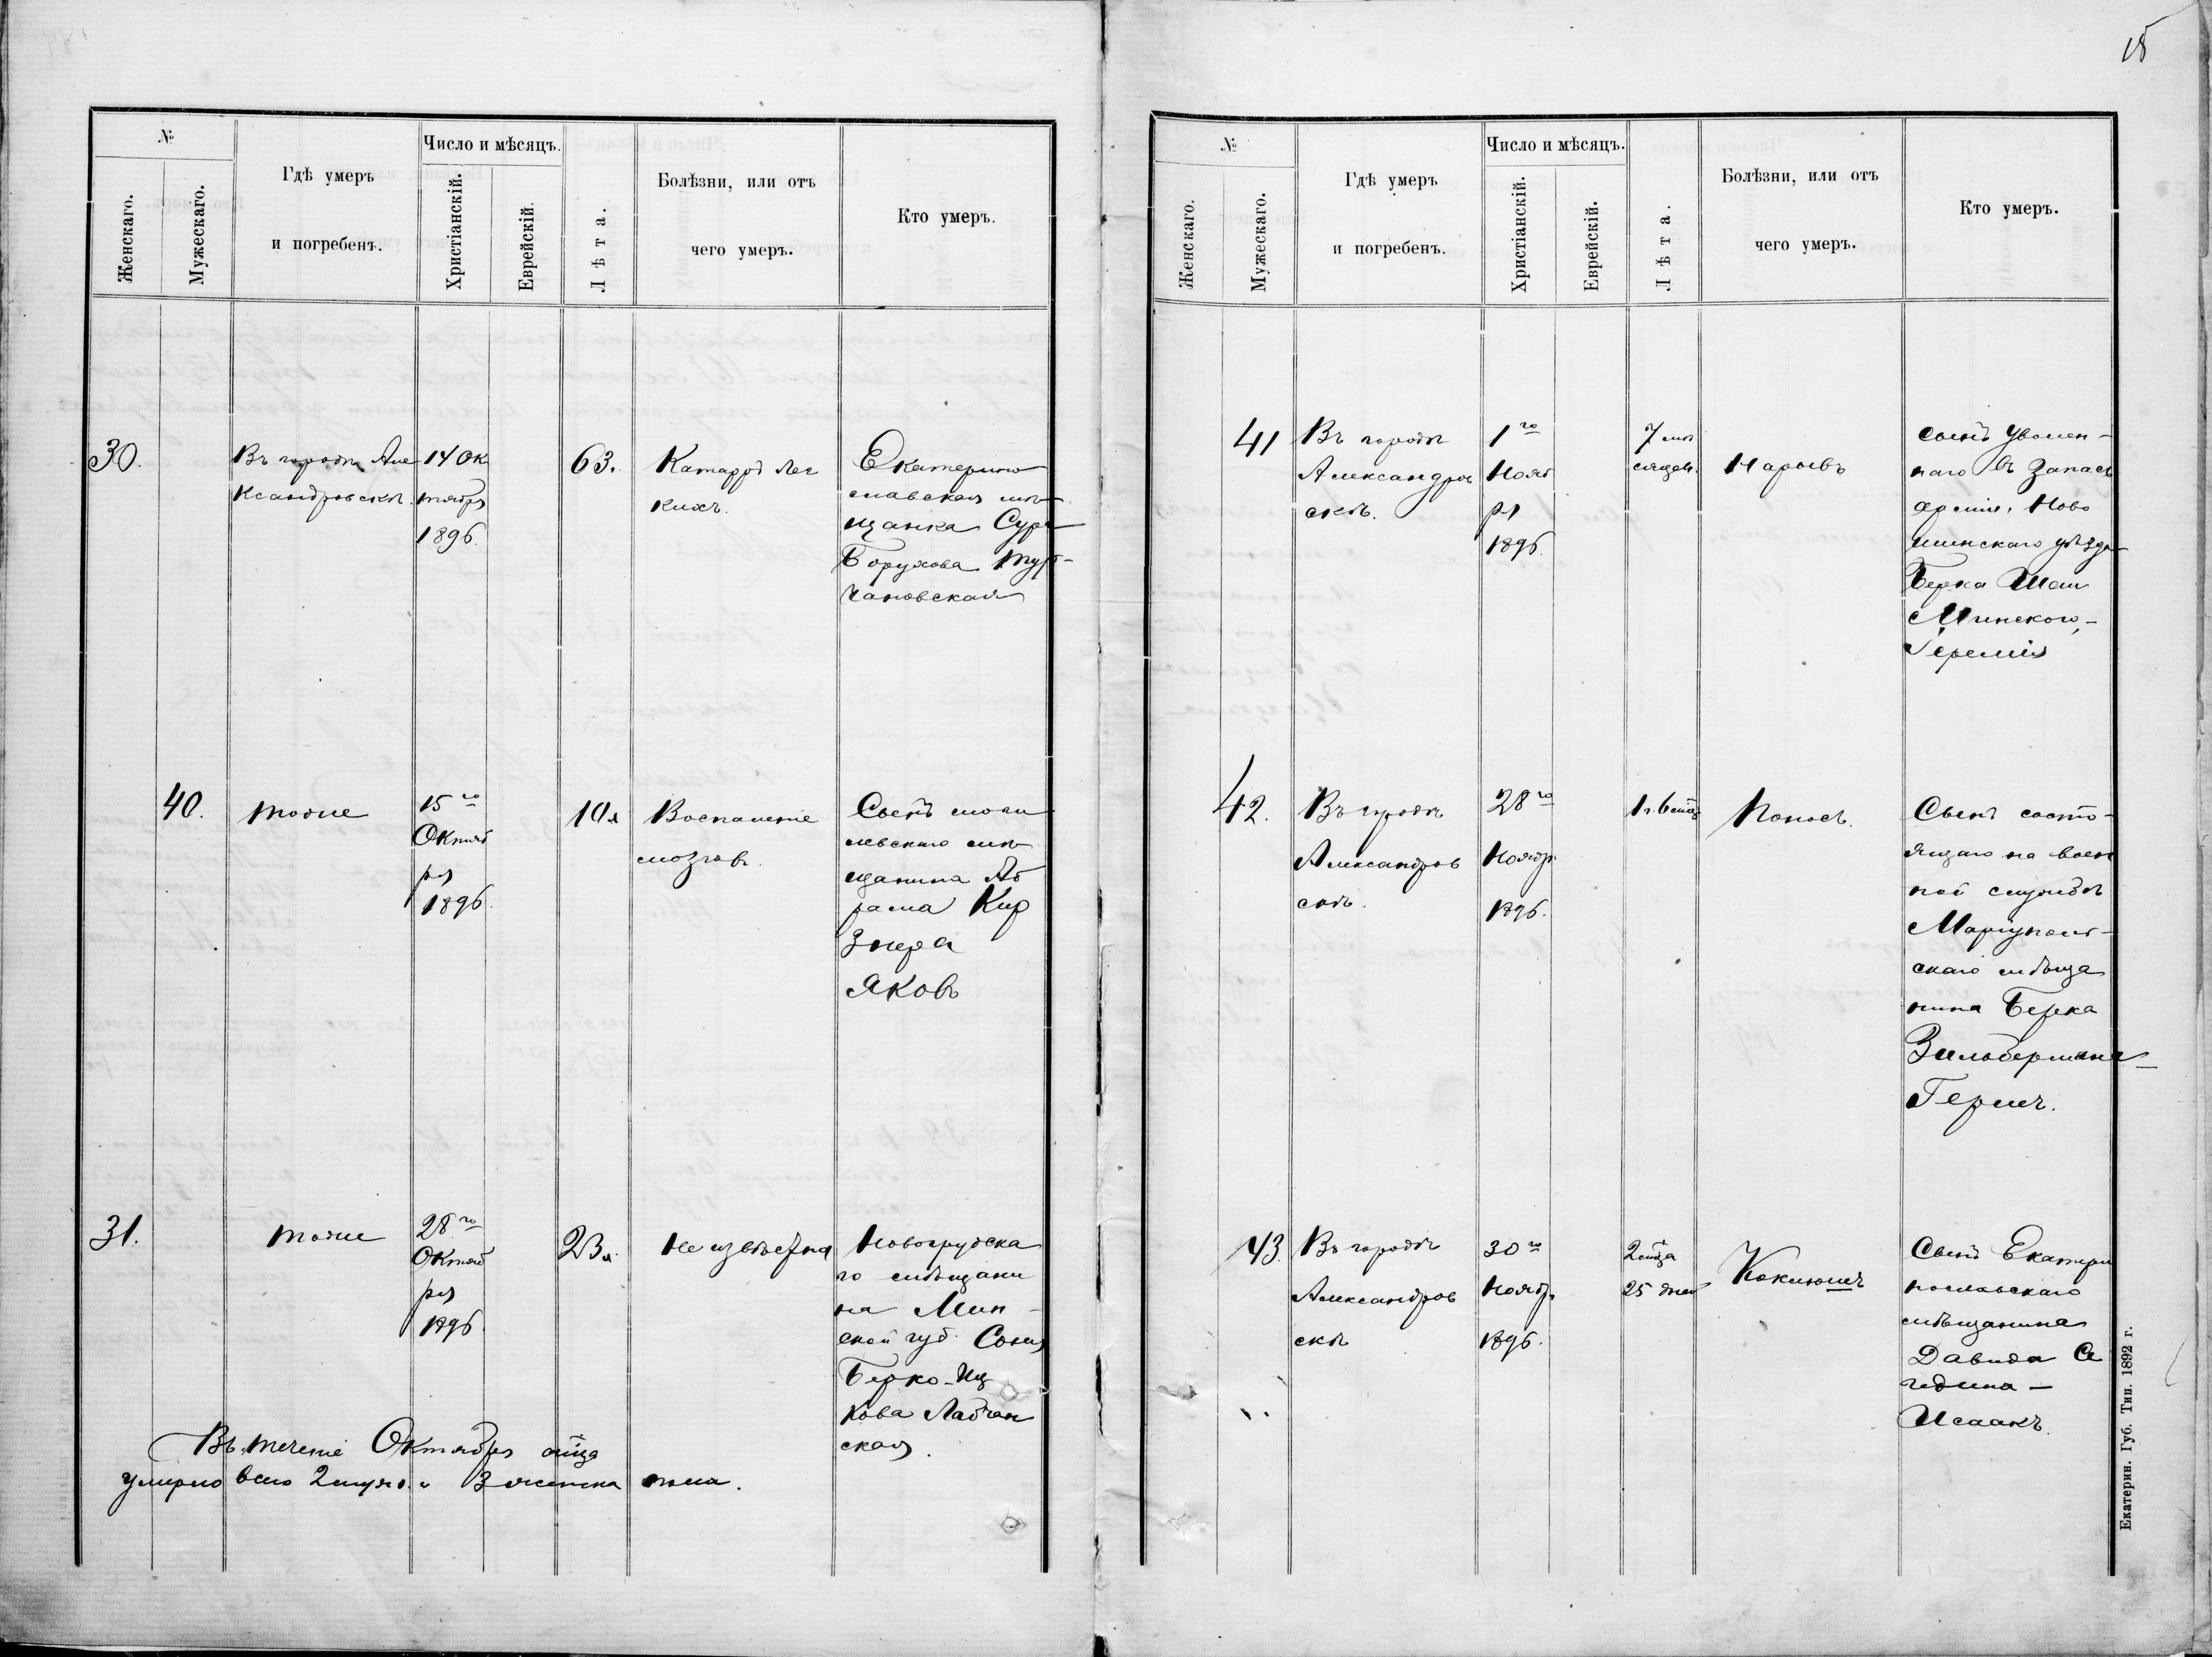 №
Женскаго.
Мужескаго.
Гдѣ умеръ
и погребенъ.
Число и мѣсяцъ.
Христіанскій.
Еврейскій.
Лѣта.
Болѣзни, или отъ
чего умеръ.
Кто умеръ.
30.
Въ городѣ Але
ксандровскѣ.
14 Ок
тября
1896.
63.
Катарръ лег
кихъ.
Екатерино
славская мѣ
щанка Сура
Борухова
чановская
40.
тоже
15го
Октяб
ря
1896.
10 л
Воспаленіе
мозговъ.
Сынъ моги
левскаго мѣ
щанина Аб
рама Кир
знера
Яковъ
31.
тоже
28го
Октяб
ря
1896.
23 л.
Не извѣстна
Новогрудска
го мѣщани
на Мин-
ской губ. Соня
Берко-Иц
кова
ская.
Въ теченіе Октября м-ца
умерло всего 2 муж. и 3 женска пола.
15
№
Женскаго.
Мужескаго.
Гдѣ умеръ
и погребенъ.
Число и мѣсяцъ.
Христіанскій.
Еврейскій.
Лѣта.
Болѣзни, или отъ
чего умеръ.
Кто умеръ.
41
Въ городѣ
Александров
скѣ.
1го
Нояб
ря
1896.
7 мѣ
сяцев.
Нарывъ
Сынъ уволен-
наго въ запасъ
арміи, Ново
минскаго уѣзда
Берка
Минскаго,-
Іеремія
42.
Въ городѣ
Александров
скѣ.
28го
Ноябр.
1896.
1 г. 6 м-ца
Поносъ.
Сынъ состо-
ящаго на воен
ной службѣ
Маріуполь-
скаго мѣща
нина Берка
Зильбермана-
Гершъ.
43.
Въ городѣ
Александров
скѣ
30го
Ноябр.
1896.
2 м-ца
25 дней
Коклюшъ
Сынъ Екатери
нославскаго
мѣщанина
Давида Се
гедина -
Исаакъ.
Екатерин. Губ. Тип. 1892 г.